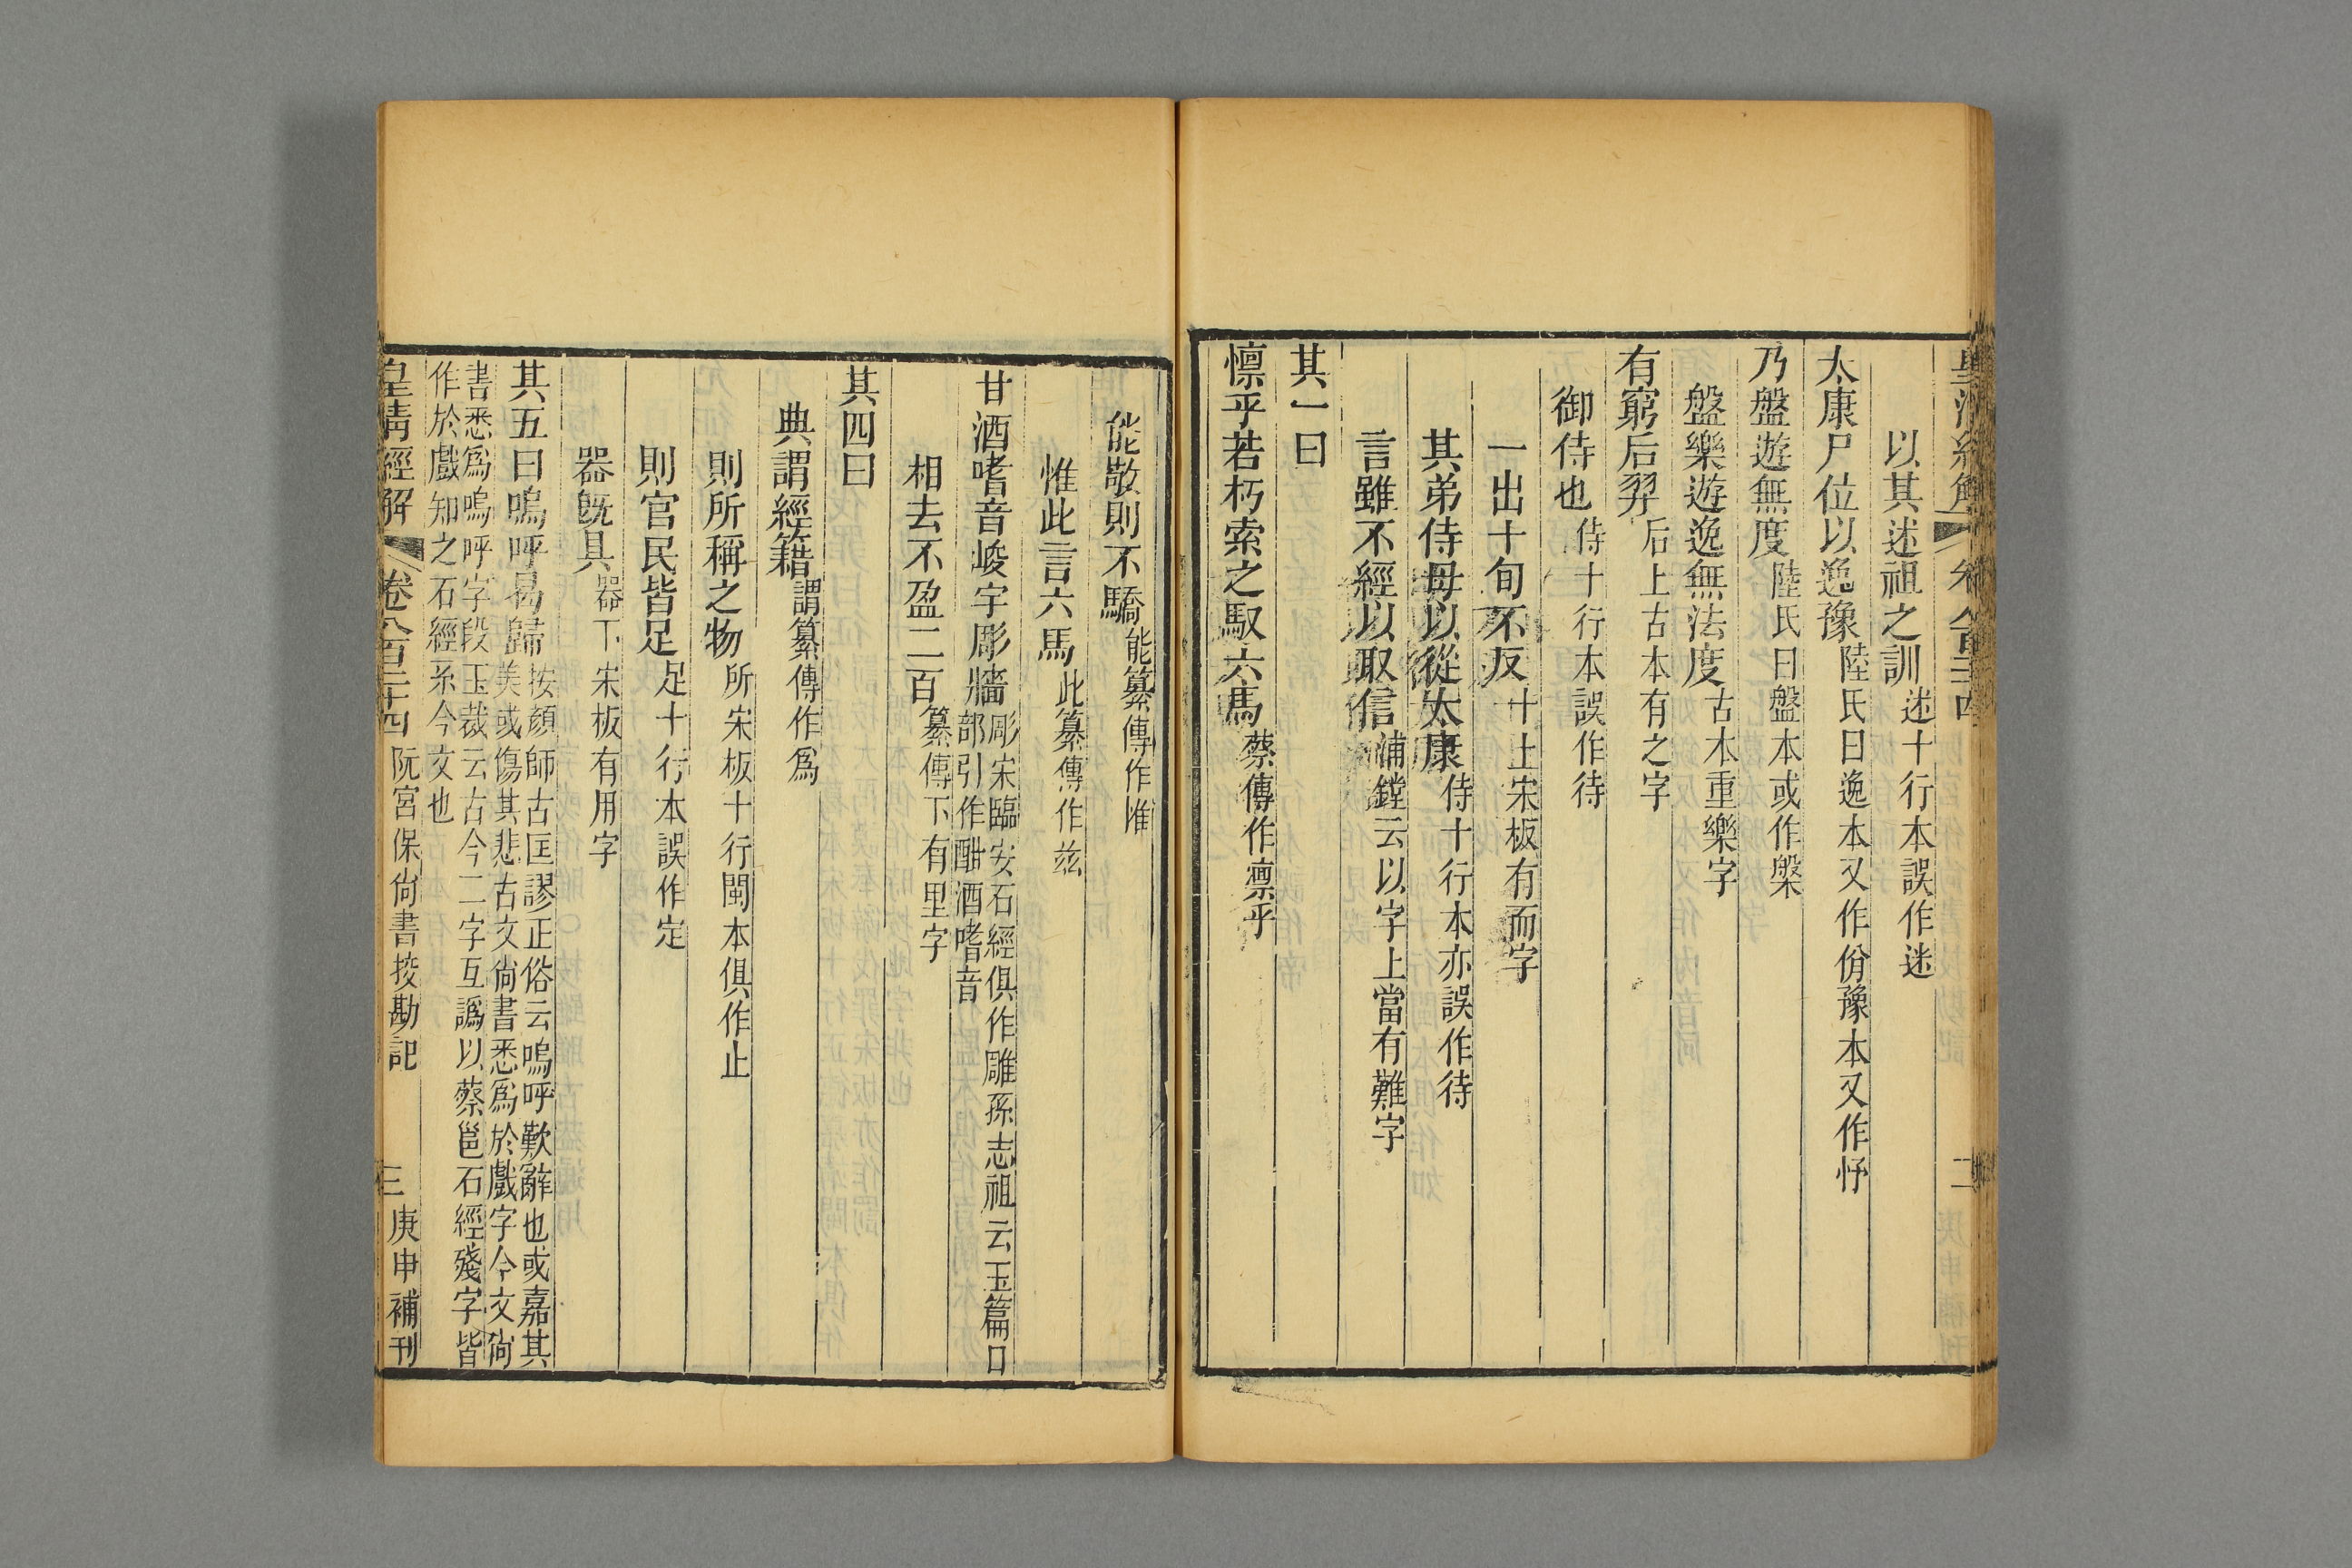 皇清經解 卷八百二十四 二
以其述祖之訓 述十行本誤作迷
太康尸位以逸豫 陸氏曰逸本又作佾豫本又作忬
乃盤遊無度 陸氏曰盤本或作槃
盤樂遊逸無法度 古本重樂字
有窮后羿 后上古本有之字
御侍也 侍十行本誤作待
一出十旬不反 十上宋板有而字
其弟侍母以從太康 侍十行本亦誤作待
言雖不經以取信 浦鏜云以字上當有難字
其一曰
懍乎若朽索之馭六馬 蔡傳作凛乎
能敬則不驕 能纂傳作惟
惟此言六馬 此纂傳作兹
甘酒嗜音峻宇彫牆 彫宋臨安石經俱作雕孫志祖云玉篇口
部引作酣酒嗜音
相去不盈二百 纂傳下有里字
其四曰
典謂經籍 謂纂傳作爲
則所稱之物 所宋板十行閩本俱作止
則官民皆足 足十行本誤作定
器旣具 器下宋板有用字
其五曰嗚呼曷歸 按顏師古匡謬正俗云嗚呼歎辭也或嘉其
美或傷其悲古文尙書悉爲於戲字今文尙
書悉爲嗚呼字段玉裁云古今二字互譌以蔡邕石經殘字皆
作於戲知之石經系今文也
皇清經解 卷八百二十四 阮宮保尙書挍勘記 三 庚申補刊